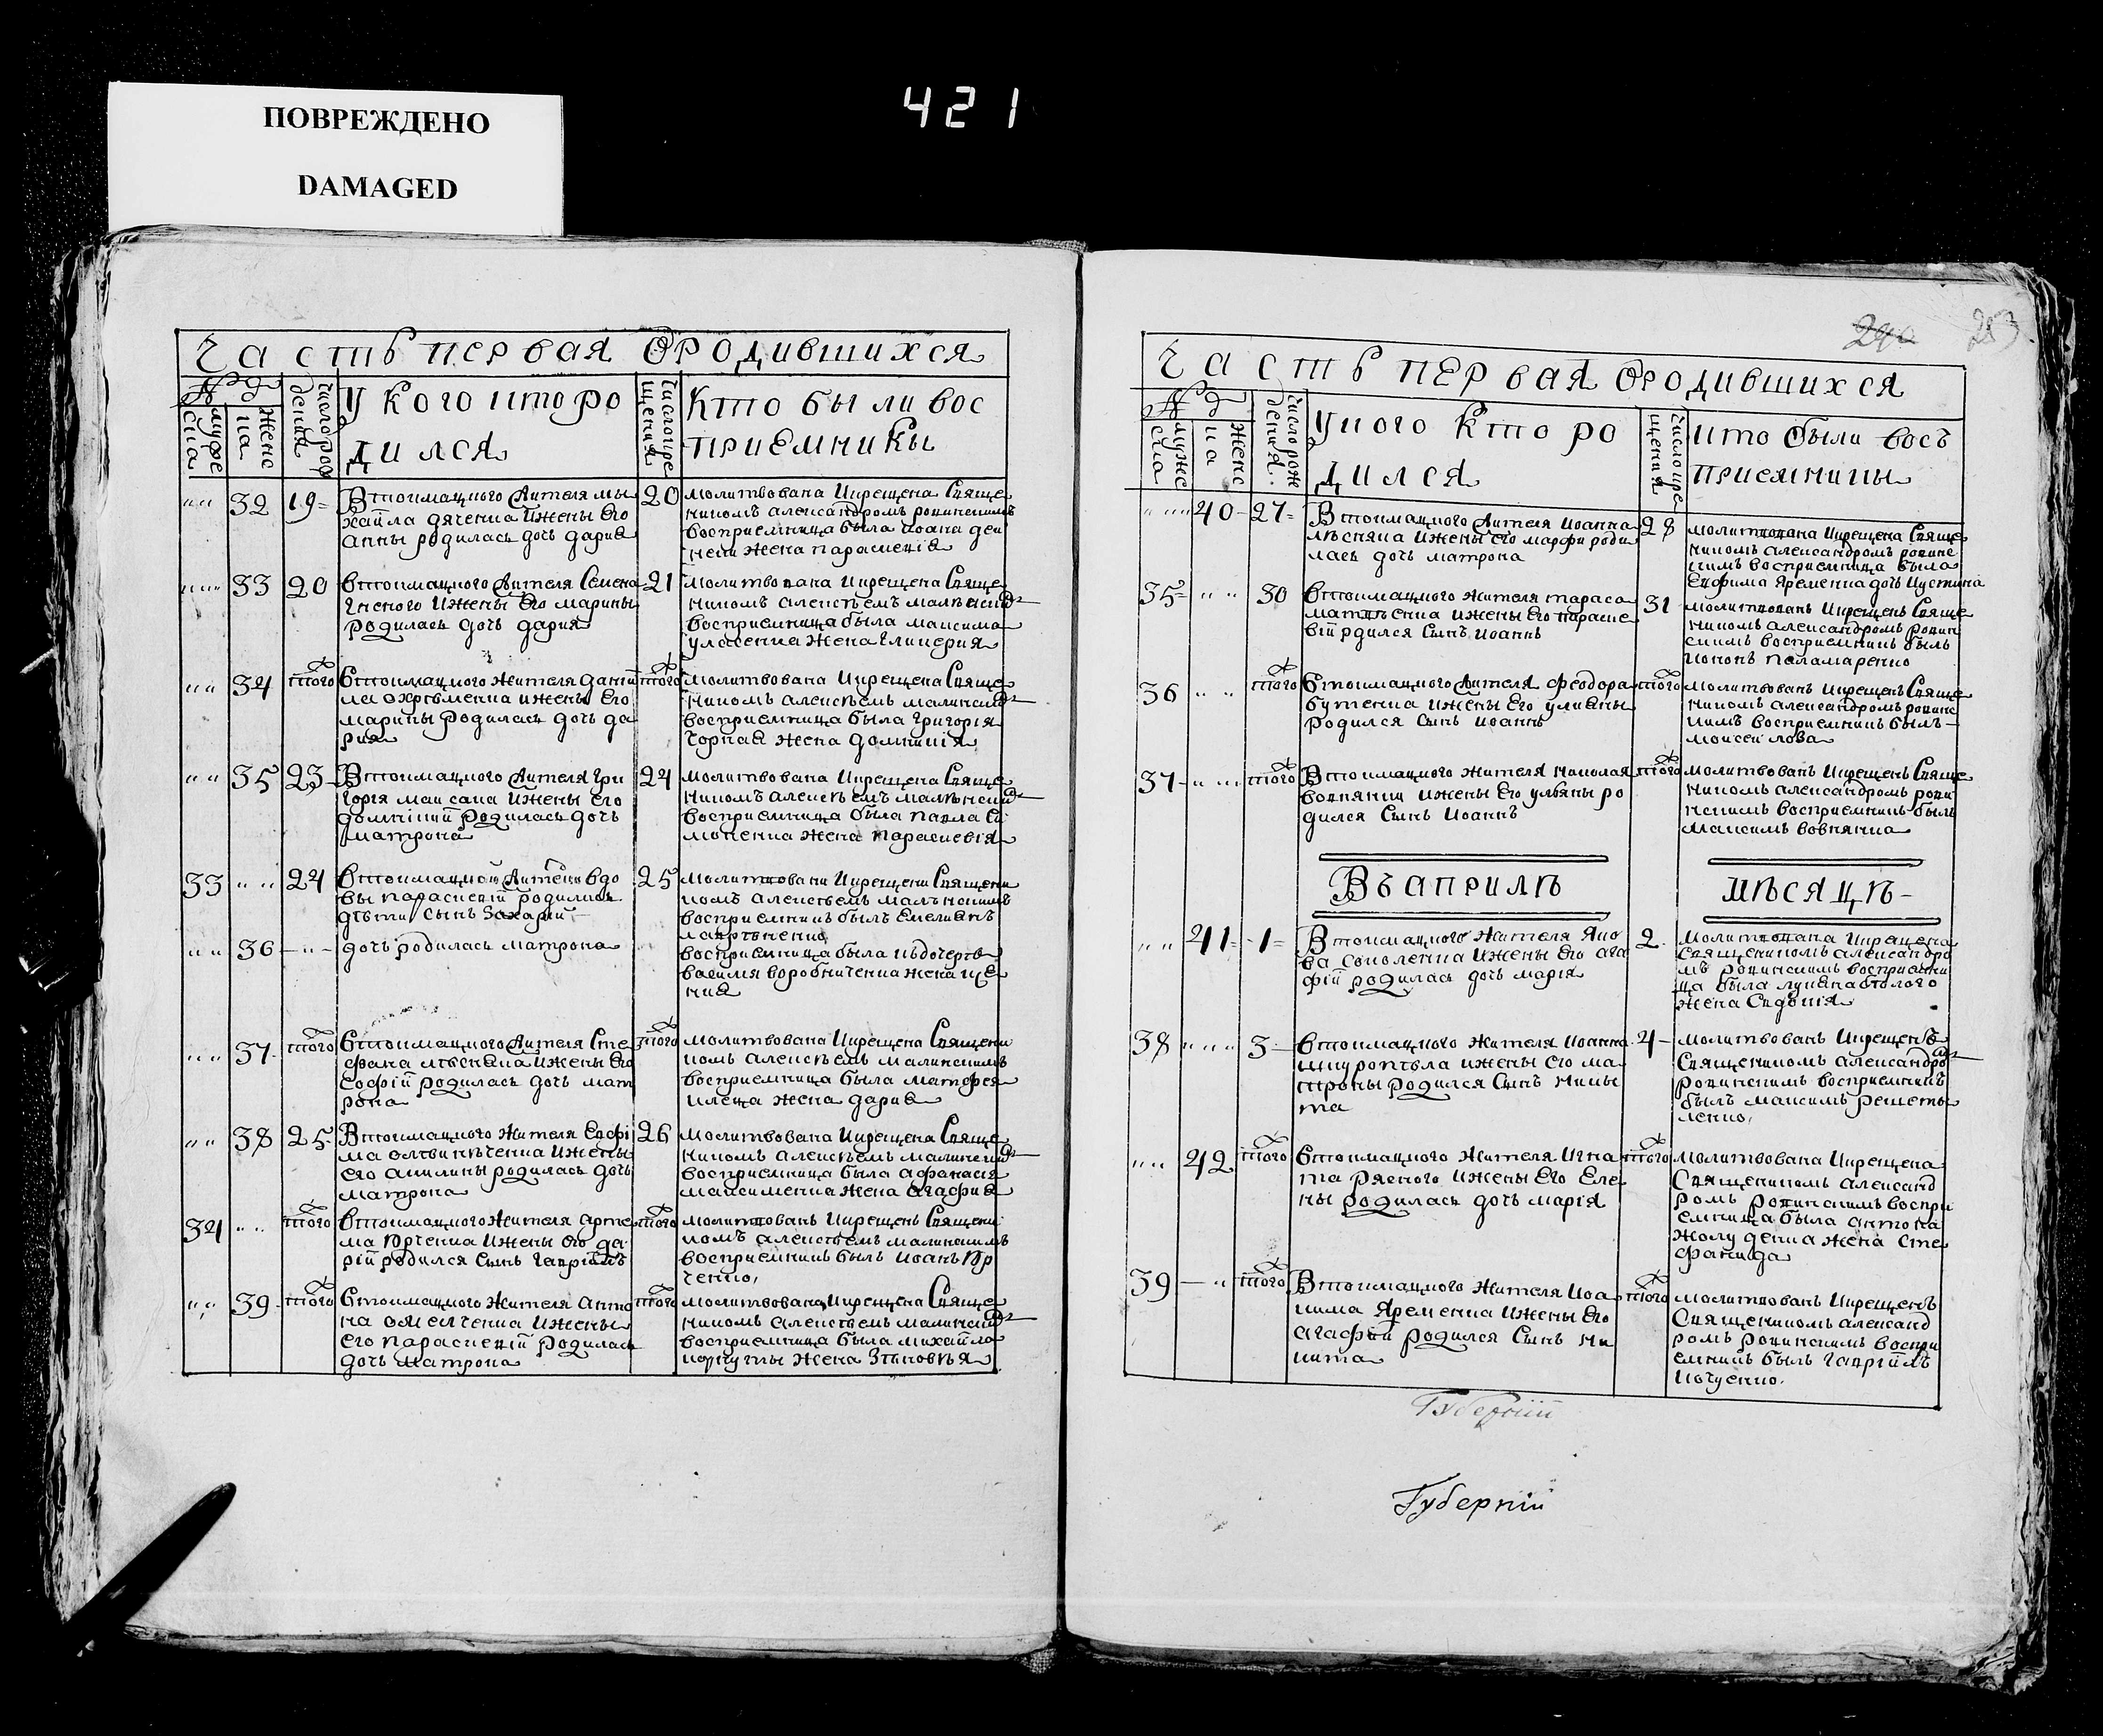 ПОВРЕЖДЕНО
DAMAGED
421
Часть первая ородившихся
№д
мужеска
женска
Число рождения
У кого кто ро
дился
Число крещения
Кто были вос
приемники
32 19 Втокмацкого Жителя ми
хайла дяченка ижены Его
Анны родилась дочь дария
20 молитвована икрещена Свяще
никомъ александромъ ровинскимъ
восприемница была
жена параскевія
33 20 втокмацкого Жителя Семена
ижены Его марины
родилась дочь дария
21 молитвована икрещена Свяще
никомъ алексѣемъ малинским
восприемница была максима
жена Гликерия
34 того втокмацкого жителя дани
ла охрѣменка ижены Его
марины родилась дочь да
рия
того молитвована икрещена Свяще
никомъ алексѣемъ малинским
восприемница была григорія
чорная жена домникія
35 23 Втокмацкого Жителя гри
горія максака ижены Его
домникіи родилась дочь
матрона
24 молитвована икрещена Свяще
никомъ алексѣемъ малѣнским
восприемница была павла
жена параскевія
33 24 втокмацкой Жители вдо
вы параскевіи родились
дѣти сынъ Захарій
25 молитвовани икрещени Священи
комъ алексѣемъ малѣнскимъ
восприемникъ былъ Емелианъ
лавренченко
36 дочь родилась матрона
восприемница была кьдочерѣ
василя воробниченка жена ксе
ния
37 того втокмацкого Жителя Сте
фана лѣсняка ижены Его
софіи родилась дочь мат
рона
того молитвована икрещена Священи
комъ алексѣемъ малинскимъ
восприемница была матфея
клеца жена дария
38 25 Втокмацкого жителя Евфі
ма ижены
его акилины родилась дочь
матрона
26 молитвована икрещена Свяще
никомъ алексѣемъ малинским
восприемница была афанасія
максименка жена агафия
34 того втокмацкого жителя арте
ма юрченка ижены Его да
ріи родился сынъ гавріилъ
того молитвованъ икрещенъ Священи
комъ алексѣемъ малинскимъ
восприемникъ былъ иванъ юр
ченко
39 того втокмацкого жителя анто
на омелченка ижены
его параскевіи родилась
дочь матрона
того молитвована икрещена Свяще
никомъ алексѣемъ малинским
восприемница была михайла
жена Зѣновѣя
290 253
Часть первая ородившихся
№д
мужеска
женска
Число рождения
Укого Кто ро
дился
Число крещения
кто были восъ
приемники
40 27 Втокмацкого Жителя иоанна
лѣсняка ижены его марфи роди
лась дочь матрона
28 молитвована икрещена Свяще
никомъ александромъ ровинс
кимъ восприемница была
Евфима яременка дочь иустина
35 30 втокмацкого жителя тараса
матвѣенка ижены Его параске
віи рдился Сынъ иоаннъ
31 молитвованъ икрещенъ Свяще
никомъ александромъ ровин
скимъ восприемникъ былъ
паламаренко
36 того втокмацкого Жителя феодора
бутенка ижены Его улияны
родился Сынъ иоаннъ
того молитвованъ икрещенъ Свяще
никомъ александромъ ровинс
кимъ восприемникъ былъ
моисей лова
37 того Втокмацкого жителя николая
вовнянки ижены Его уляны ро
дился Сынъ иоаннъ
того молитвованъ икрещенъ Свяще
никомъ александромъ рови
нскимъ восприемникъ былъ
максимъ вовнянка
Въ априлѣ мѣсяцѣ
41 1 Втокмацкого жителя яко
ва соколенка ижены Его ага
фіи родилась дочь марія
2 молитвована икрещена
Священикомъ александро
мъ ровинскимъ восприемни
ца была лукяна столого
жена Евдокія
38 3 втокмацкого жителя иоанна
ижены его ма
троны родился Сынъ ники
та
4 молитвованъ икрещенъ
Священикомъ александро
ровинскимъ восприемникъ
былъ максимъ решеты
ленко
42 того втокмацкого жителя игна
та рясного ижены Его Еле
ны родилась дочь марія
того молитвована икрещена
Священикомъ александ
ромъ ровинскимъ воспри
емница была антона
жолуденка жена сте
фанида
39 того Втокмацкого жителя иоа
кима яременка ижены Его
агафіи родился Сынъ ни
кита
того молитвованъ икрещенъ
Священикомъ александ
ромъ ровинскимъ воспри
емникъ былъ гавріилъ
Губерніи
Губерніи